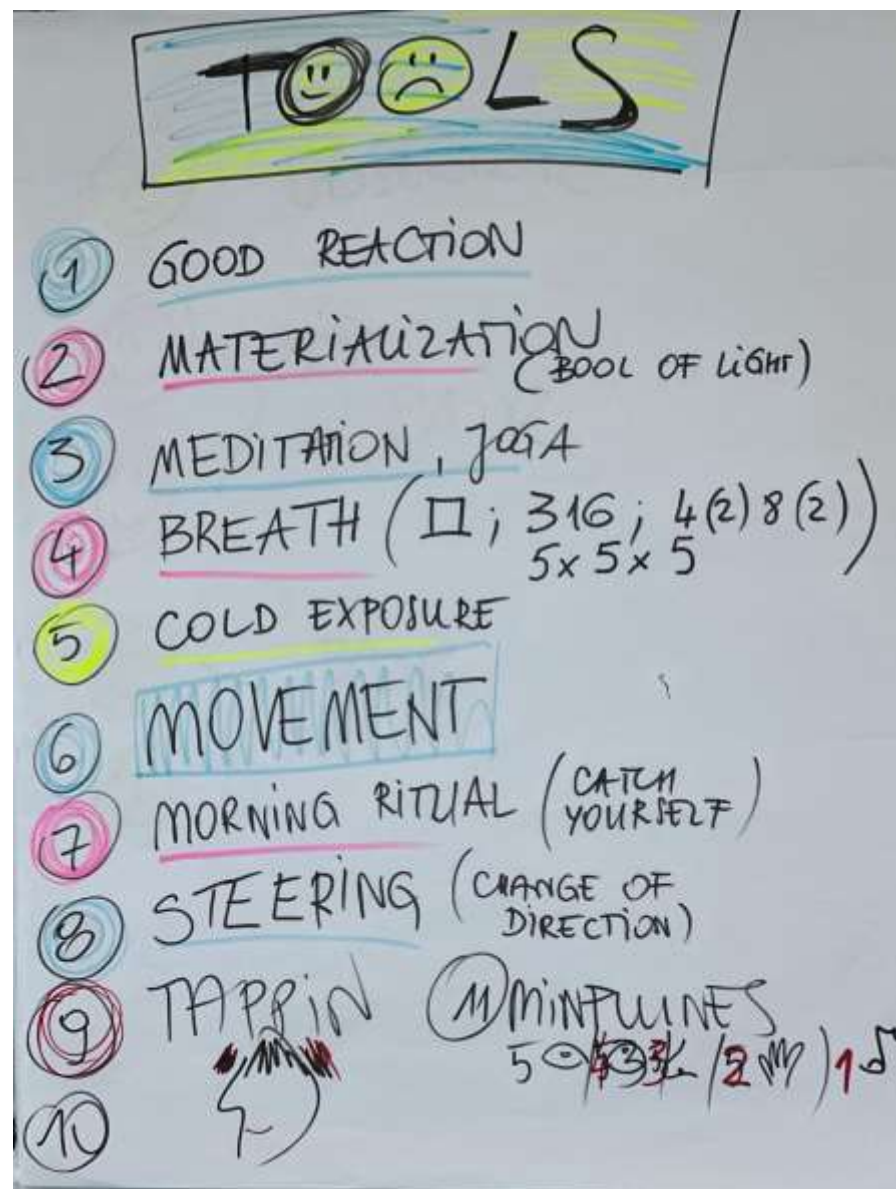 TOOLS
1 GOOD REACTION
2 MATERIALIZATION
(BOOL OF LIGHT)
3 MEDITATION, JOGA
4 BREATH (□; 316; 4(2)8(2))
5x5x5
5 COLD EXPOSURE
6 MOVEMENT
7 MORNING RITUAL (CATCH
YOURSELF)
8 STEERING (CHANGE OF
DIRECTION)
9 TAPPIN
11 MINFULLNES
5 / 3 / 2 ) 1
10